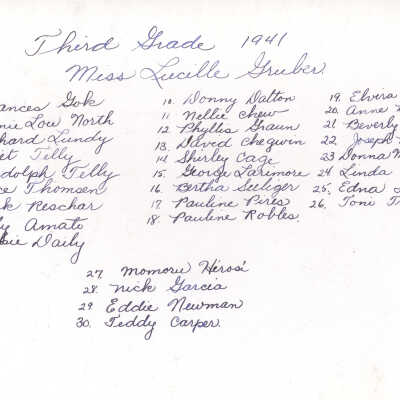 Third Grade 1941
Miss Lucille Gruber
ances Gok
nie Lou North
chard Lundy
et Telly
dolph Telly
ce Thomsen
k Reschar
y Amato
sie Daily
10. Donny Dalton
11. Nellie Chew
12 Phyllis Graun
13. David Chegwin
14 Shirley Cage
15. George Larimore
16 Bertha Seeliger
17 Pauline Pires
18. Pauline Robles.
19. Elvera
20. Anne
21 Beverly
22 Joseph
23 Donna
24 Linda
25. Edna
26. Toni
27 Momoru Hirosi
28. Nick Garcia
29 Eddie Newman
30. Teddy Carper